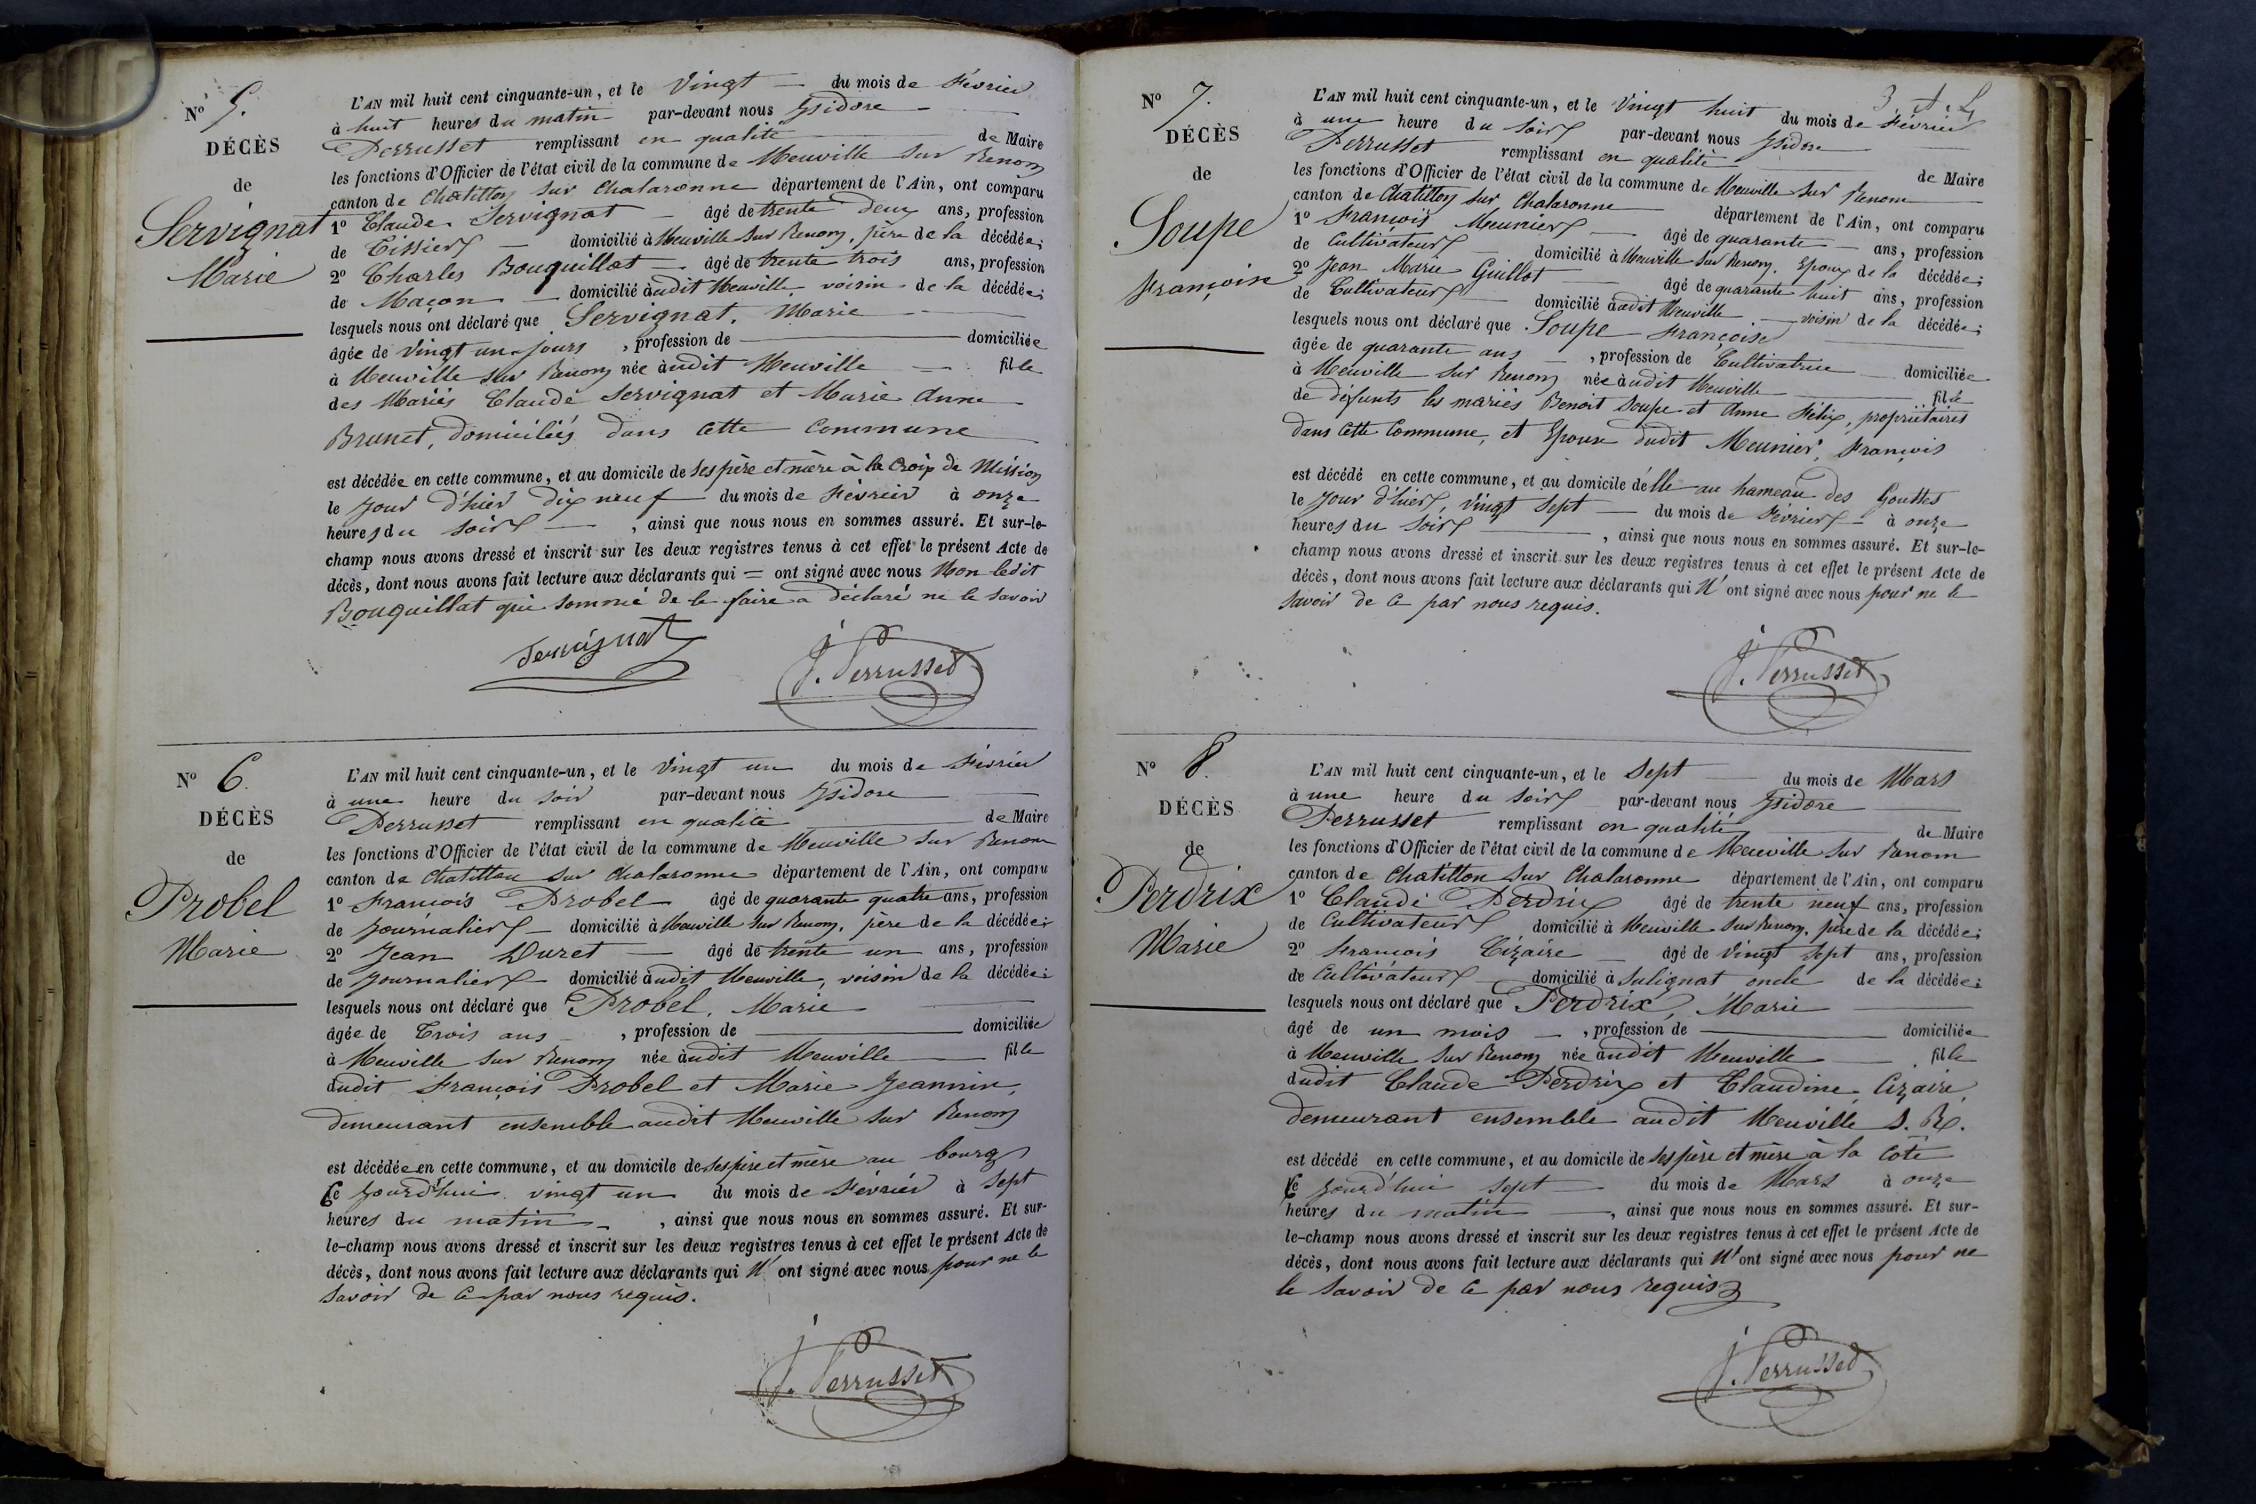 No 5.
DÉCÈS
de
Servignat
Marie
L'AN mil huit cent cinquante-un, et le Vingt du mois de Février
à huit heures du matin par-devant nous Isidore
Perrusset remplissant en qualité de Maire
les fonctions d'Officier de l'état civil de la commune de Neuville sur Renom
canton de Chatillon sur Chalaronne département de l'Ain, ont comparu
1º Claude Servignat âgé de trente deux ans, profession
de Tissier domicilié à Neuville sur Renom, père de la décédée;
2º Charles Bouquillat âgé de trente trois ans, profession
de Maçon domicilié audit Neuville voisin de la décédée;
lesquels nous ont déclaré que Servignat, Marie
âgée de Vingt un jours, profession de domiciliée
à Neuville sur Renom née audit Neuville fille
des Mariés Claude Servignat et Marie Anne
Brunet, domiciliés dans cette commune
est décédée en cette commune, et au domicile de ses père et mère à la Croix de Mission
le jour d'hier dix neuf du mois de Février à onze
heures du soir, ainsi que nous nous en sommes assuré. Et sur-le-
champ nous avons dressé et inscrit sur les deux registres tenus à cet effet le présent Acte de
décès, dont nous avons fait lecture aux déclarants qui = ont signé avec nous Non ledit
Bouquillat qui sommé de le faire a déclaré ne le savoir
Servignat J. Perrusset
No 6.
DÉCÈS
de
Probel
Marie
L'AN mil huit cent cinquante-un, et le Vingt un du mois de Février
à une heure du soir par-devant nous Isidore
Perrusset remplissant en qualité de Maire
les fonctions d'Officier de l'état civil de la commune de Neuville sur Renom
canton de Chatillon sur Chalaronne département de l'Ain, ont comparu
1º François Probel âgé de quarante quatre ans, profession
de journalier domicilié à Neuville sur Renom, père de la décédée;
2º Jean Duret âgé de trente un ans, profession
de journalier domicilié audit Neuville, voisin de la décédée;
lesquels nous ont déclaré que Probel, Marie
âgée de Trois ans, profession de domiciliée
à Neuville sur Renom née audit Neuville fille
dudit François Probel et Marie Jeannin,
demeurant ensemble audit Neuville sur Renom
est décédée en cette commune, et au domicile de ses père et mère au bourg
Ce jourd'hui vingt un du mois de Février à sept
heures du matin, ainsi que nous nous en sommes assuré. Et sur-
le-champ nous avons dressé et inscrit sur les deux registres tenus à cet effet le présent Acte de
décès, dont nous avons fait lecture aux déclarants qui N' ont signé avec nous pour ne le
savoir de ce par nous requis.
J. Perrusset
3.
No 7.
DÉCÈS
de
Soupe
Françoise
L'AN mil huit cent cinquante-un, et le Vingt huit du mois de Février
à une heure du soir par-devant nous Isidore
Perrusset remplissant en qualité de Maire
les fonctions d'Officier de l'état civil de la commune de Neuville sur Renom
canton de Chatillon sur Chalaronne département de l'Ain, ont comparu
1º François Meunier âgé de quarante ans, profession
de Cultivateur domicilié à Neuville sur Renom, Epoux de la décédée;
2º Jean Marie Guillot âgé de quarante huit ans, profession
de Cultivateur domicilié audit Neuville voisin de la décédée;
lesquels nous ont déclaré que Soupe Françoise
âgée de quarante ans, profession de Cultivatrice domiciliée
à Neuville sur Renom née audit Neuville fille
de défunts les mariés Benoit Soupe et Anne Félix, propriétaires
dans cette Commune, et Epouse dudit Meunier, François
est décédé en cette commune, et au domicile d'elle au hameau des Gouttes
le jour d'hier, vingt sept du mois de Février à onze
heures du soir, ainsi que nous nous en sommes assuré. Et sur-le-
champ nous avons dressé et inscrit sur les deux registres tenus à cet effet le présent Acte de
décès, dont nous avons fait lecture aux déclarants qui N' ont signé avec nous pour ne le
savoir de ce par nous requis.
J. Perrusset
No 8.
DÉCÈS
de
Perdrix
Marie
L'AN mil huit cent cinquante-un, et le Sept du mois de Mars
à une heure du soir par-devant nous Isidore
Perrusset remplissant en qualité de Maire
les fonctions d'Officier de l'état civil de la commune de Neuville sur Renom
canton de Chatillon sur Chalaronne département de l'Ain, ont comparu
1º Claude Perdrix âgé de trente neuf ans, profession
de Cultivateur domicilié à Neuville sur Renom, père de la décédée;
2º François Cizaire âgé de vingt sept ans, profession
de Cultivateur domicilié à Sulignat oncle de la décédée;
lesquels nous ont déclaré que Perdrix, Marie
âgé de un mois, profession de domiciliée
à Neuville sur Renom née audit Neuville fille
dudit Claude Perdrix et Claudine Cizaire,
demeurant ensemble audit Neuville S. R.
est décédé en cette commune, et au domicile de ses père et mère à la Côte
Ce jourd'hui sept du mois de Mars à onze
heures du matin, ainsi que nous nous en sommes assuré. Et sur-
le-champ nous avons dressé et inscrit sur les deux registres tenus à cet effet le présent Acte de
décès, dont nous avons fait lecture aux déclarants qui N' ont signé avec nous pour ne
le savoir de ce par nous requis
J. Perrusset